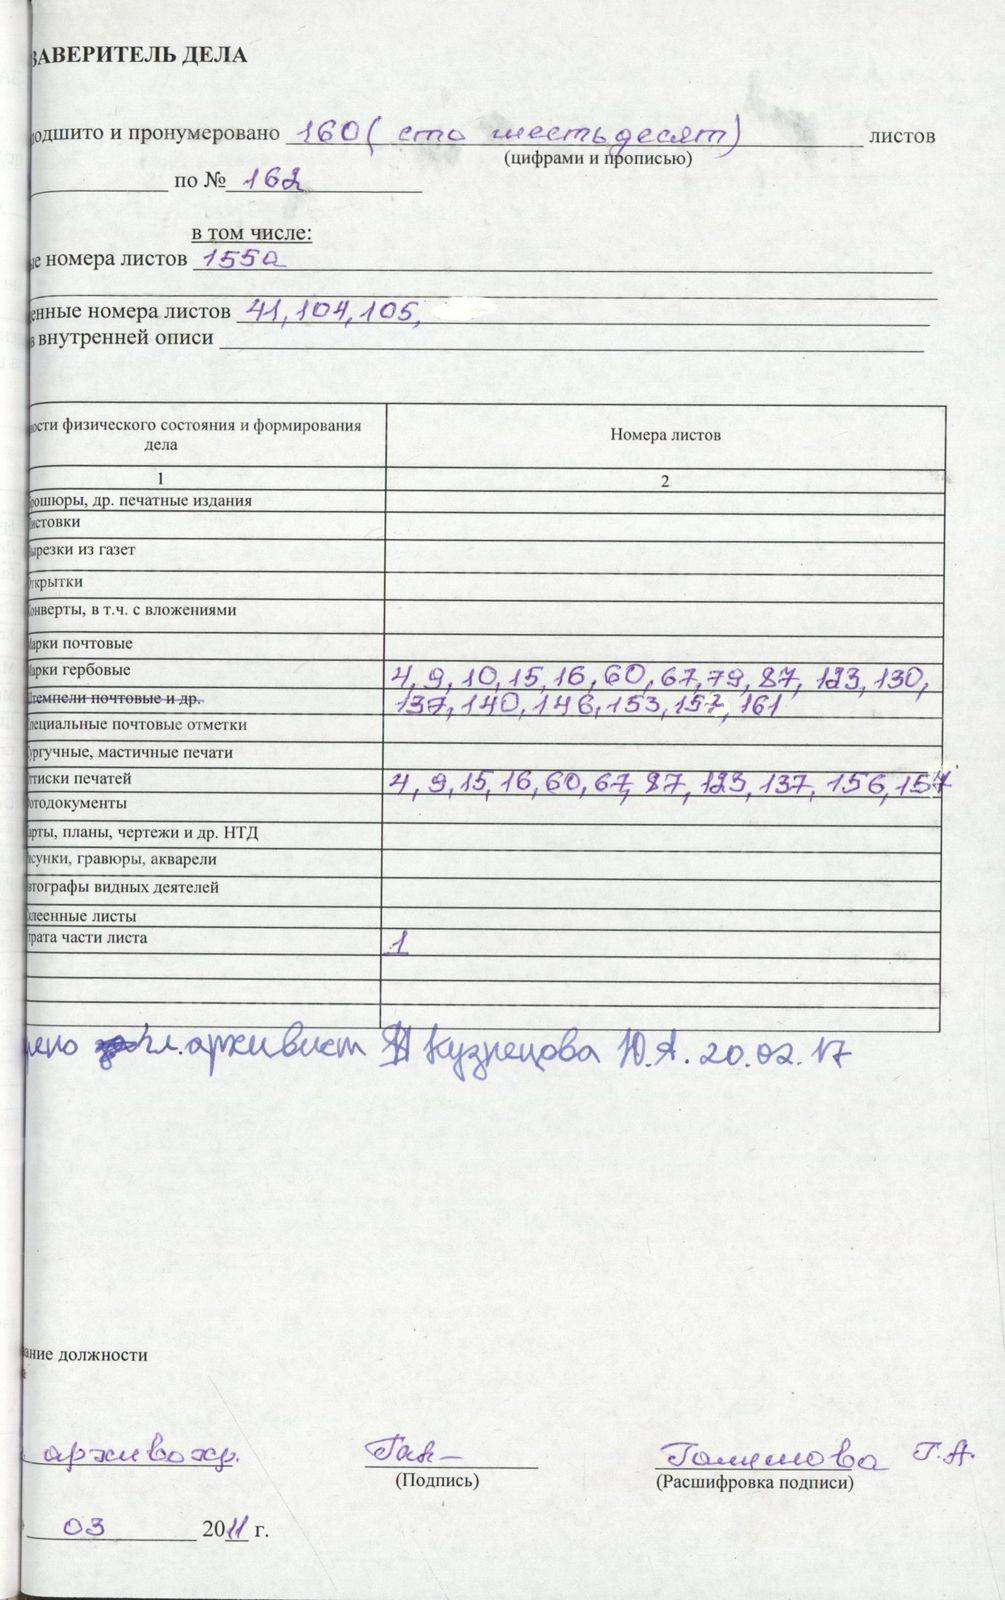 ЗАВЕРИТЕЛЬ ДЕЛА
одшито и пронумеровано 160 (сто шестьдесят) листов
(цифрами и прописью)
по № 162
в том числе:
е номера листов 155а
енные номера листов 41, 104, 105,
в внутренней описи
ости физического состояния и формирования дела Номера листов
1 2
рошюры, др. печатные издания
истовки
ырезки из газет
ткрытки
онверты, в т.ч. с вложениями
арки почтовые
арки гербовые 4, 9, 10, 15, 16, 60, 67, 79, 87, 123, 130,
темпели почтовые и др. 137, 140, 146, 153, 157, 161
пециальные почтовые отметки
ургучные, мастичные печати
ттиски печатей 4, 9, 15, 16, 60, 67, 87, 123, 137, 156, 157
отодокументы
арты, планы, чертежи и др. НТД
исунки, гравюры, акварели
втографы видных деятелей
клеенные листы
трата части листа 1
гл. архивист Кузнецова Ю.А. 20.02.17
ание должности
архивохр. Гал
(Подпись) (Расшифровка подписи)
Г.А.
03 2011 г.